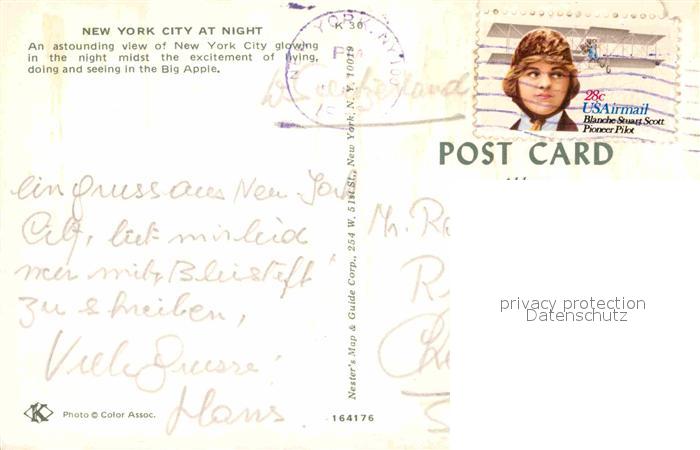 NEW YORK CITY AT NIGHT
An astounding view of New York City glowing
in the night midst the excitement of living,
doing and seeing in the Big Apple.
YORK, NY
K 30
PM
Switzerland
28c
USAirmail
Blanche Stuart Scott
Pioneer Pilot
POST CARD
ein gruss aus New York
City, tut mir leid
nur mit Bleistift
zu schreiben,
Viele Grüsse
Hans
Mr.
privacy protection
Datenschutz
Nester's Map & Guide Corp., 254 W. 51st St., New York, N. Y. 10019
K
Photo © Color Assoc.
164176